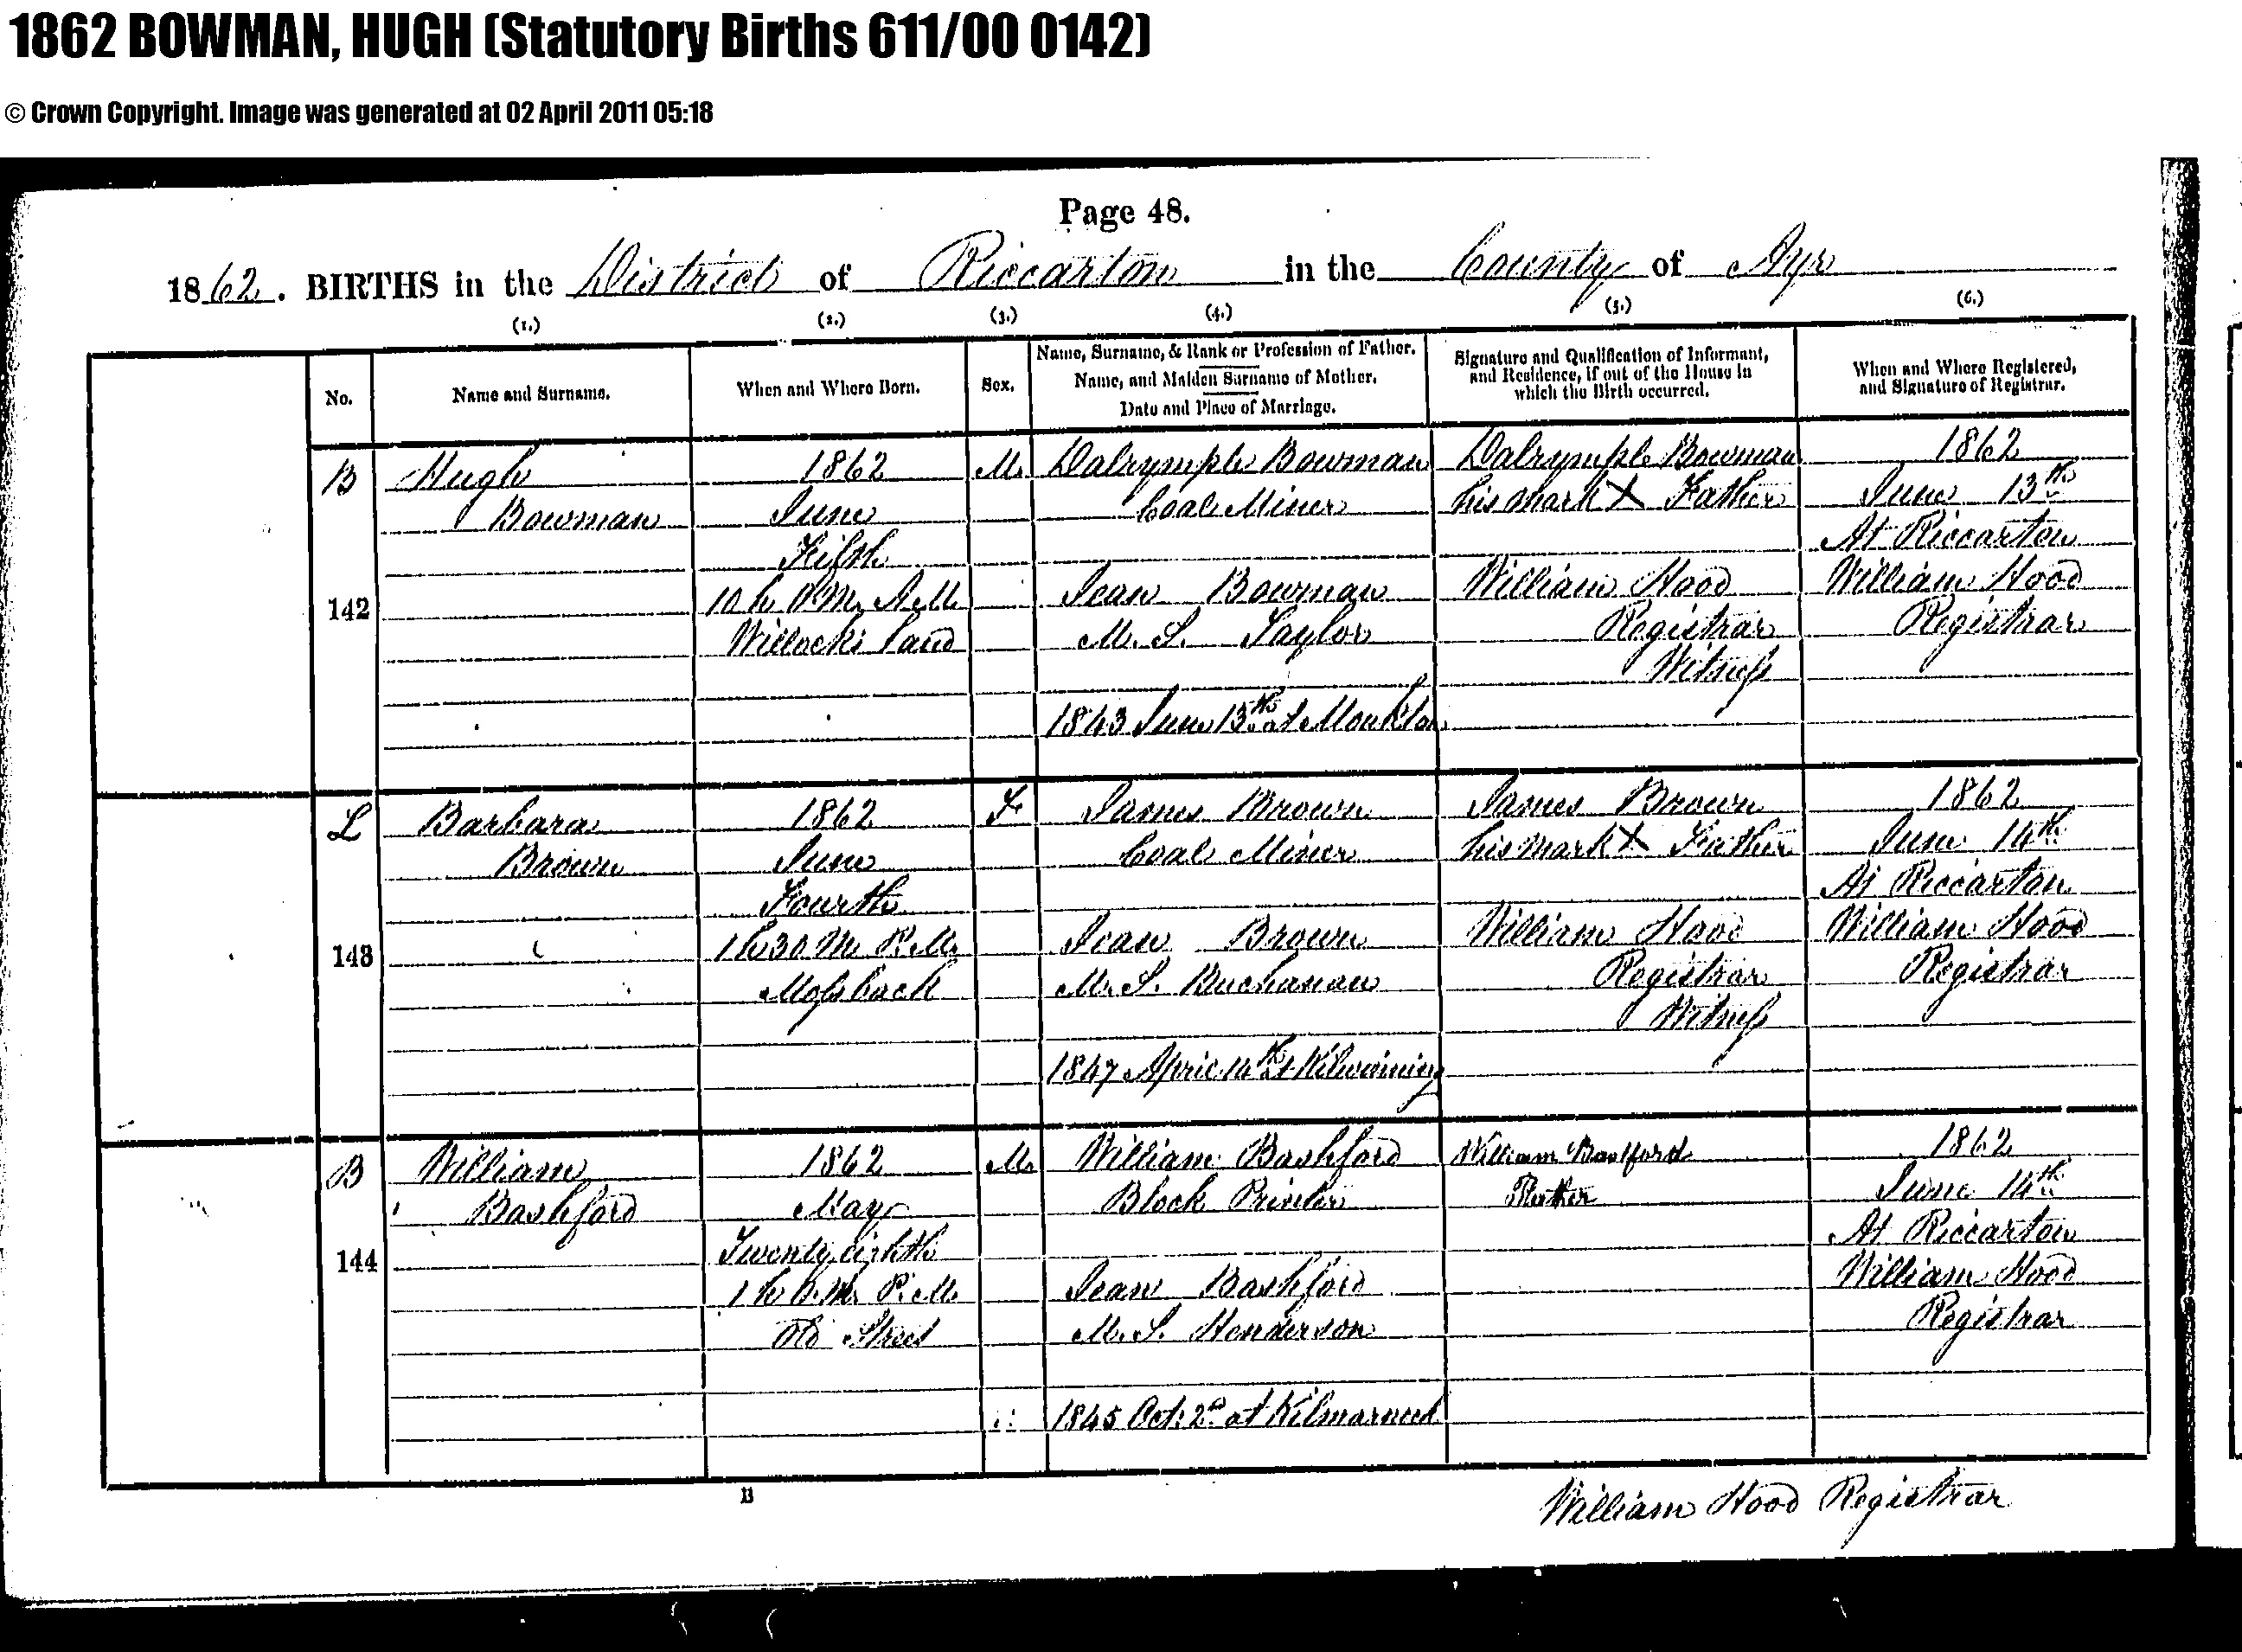 1862 BOWMAN, HUGH (Statutory Births 611/00 0142)
© Crown Copyright. Image was generated at 02 April 2011 05:18
Page 48.
1862. BIRTHS in the District of Riccarton in the County of Ayr
(1.) (2.) (3.) (4.) (5.) (6.)
No.
Name and Surname.
When and Where Born.
Sex.
Name, Surname, & Rank or Profession of Father.
Name, and Maiden Surname of Mother.
Date and Place of Marriage.
Signature and Qualification of Informant,
and Residence, if out of the House in
which the Birth occurred.
When and Where Registered,
and Signature of Registrar.
B
142
Hugh
Bowman
1862
June
Fifth
10 h 0 M. A.M.
Willocks Land
M.
Dalrymple Bowman
Coal Miner
Jean Bowman
M. S. Taylor
1843 June 13th at Monkton
Dalrymple Bowman
his mark X Father
William Hood
Registrar
Witness
1862
June 13th
At Riccarton
William Hood
Registrar
L
143
Barbara
Brown
1862
June
Fourth
1 h 30 M. P.M.
Mossback
F
James Brown
Coal Miner
Jean Brown
M. S. Buchanan
1847 April 14th at Kilwinning
James Brown
his mark X Father
William Hood
Registrar
Witness
1862
June 14th
At Riccarton
William Hood
Registrar
B
144
William
Bashford
1862
May
Twenty eighth
1 h 0 M. P.M.
Old Street
M.
William Bashford
Block Printer
Jean Bashford
M. S. Henderson
1845 Oct. 2d at Kilmarnock
William Bashford
Father
1862
June 14th
At Riccarton
William Hood
Registrar
B
William Hood Registrar